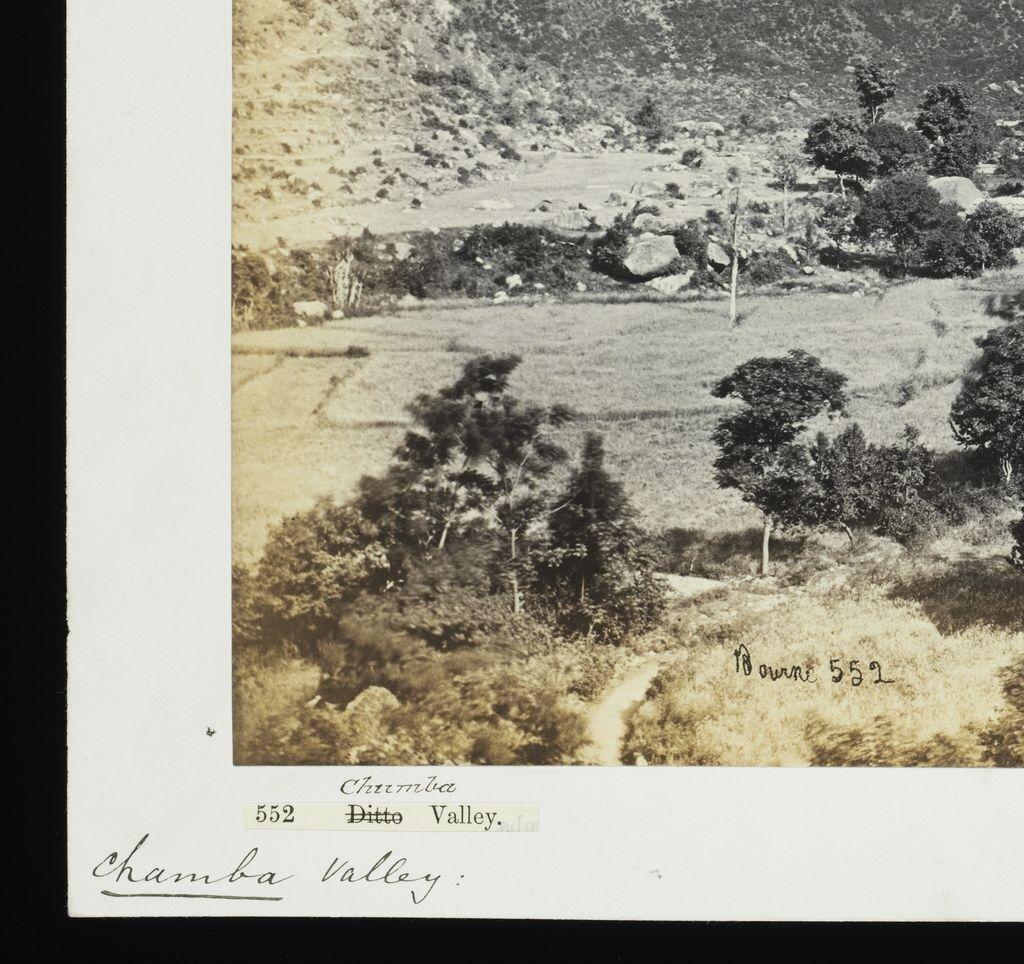 Bourne 552
Chumba
552 Ditto Valley.
Chamba Valley: